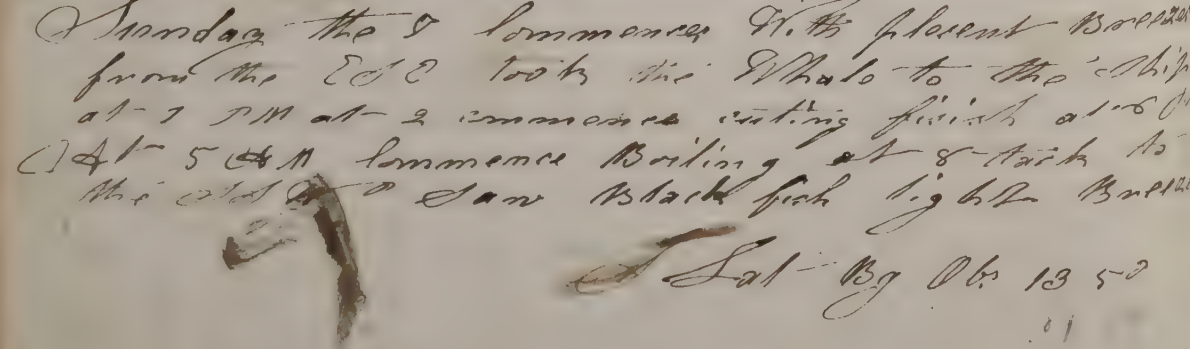 Sunday the 8 Commences With plesent Breezes
from the ESE took the Whale to the Ship
at 1 PM at 2 commence cuting finish at 8 P
At 5 AM Commence Boiling at 8 tack to
the Saw Black fish light Breeze
Lat By Obs 13 50